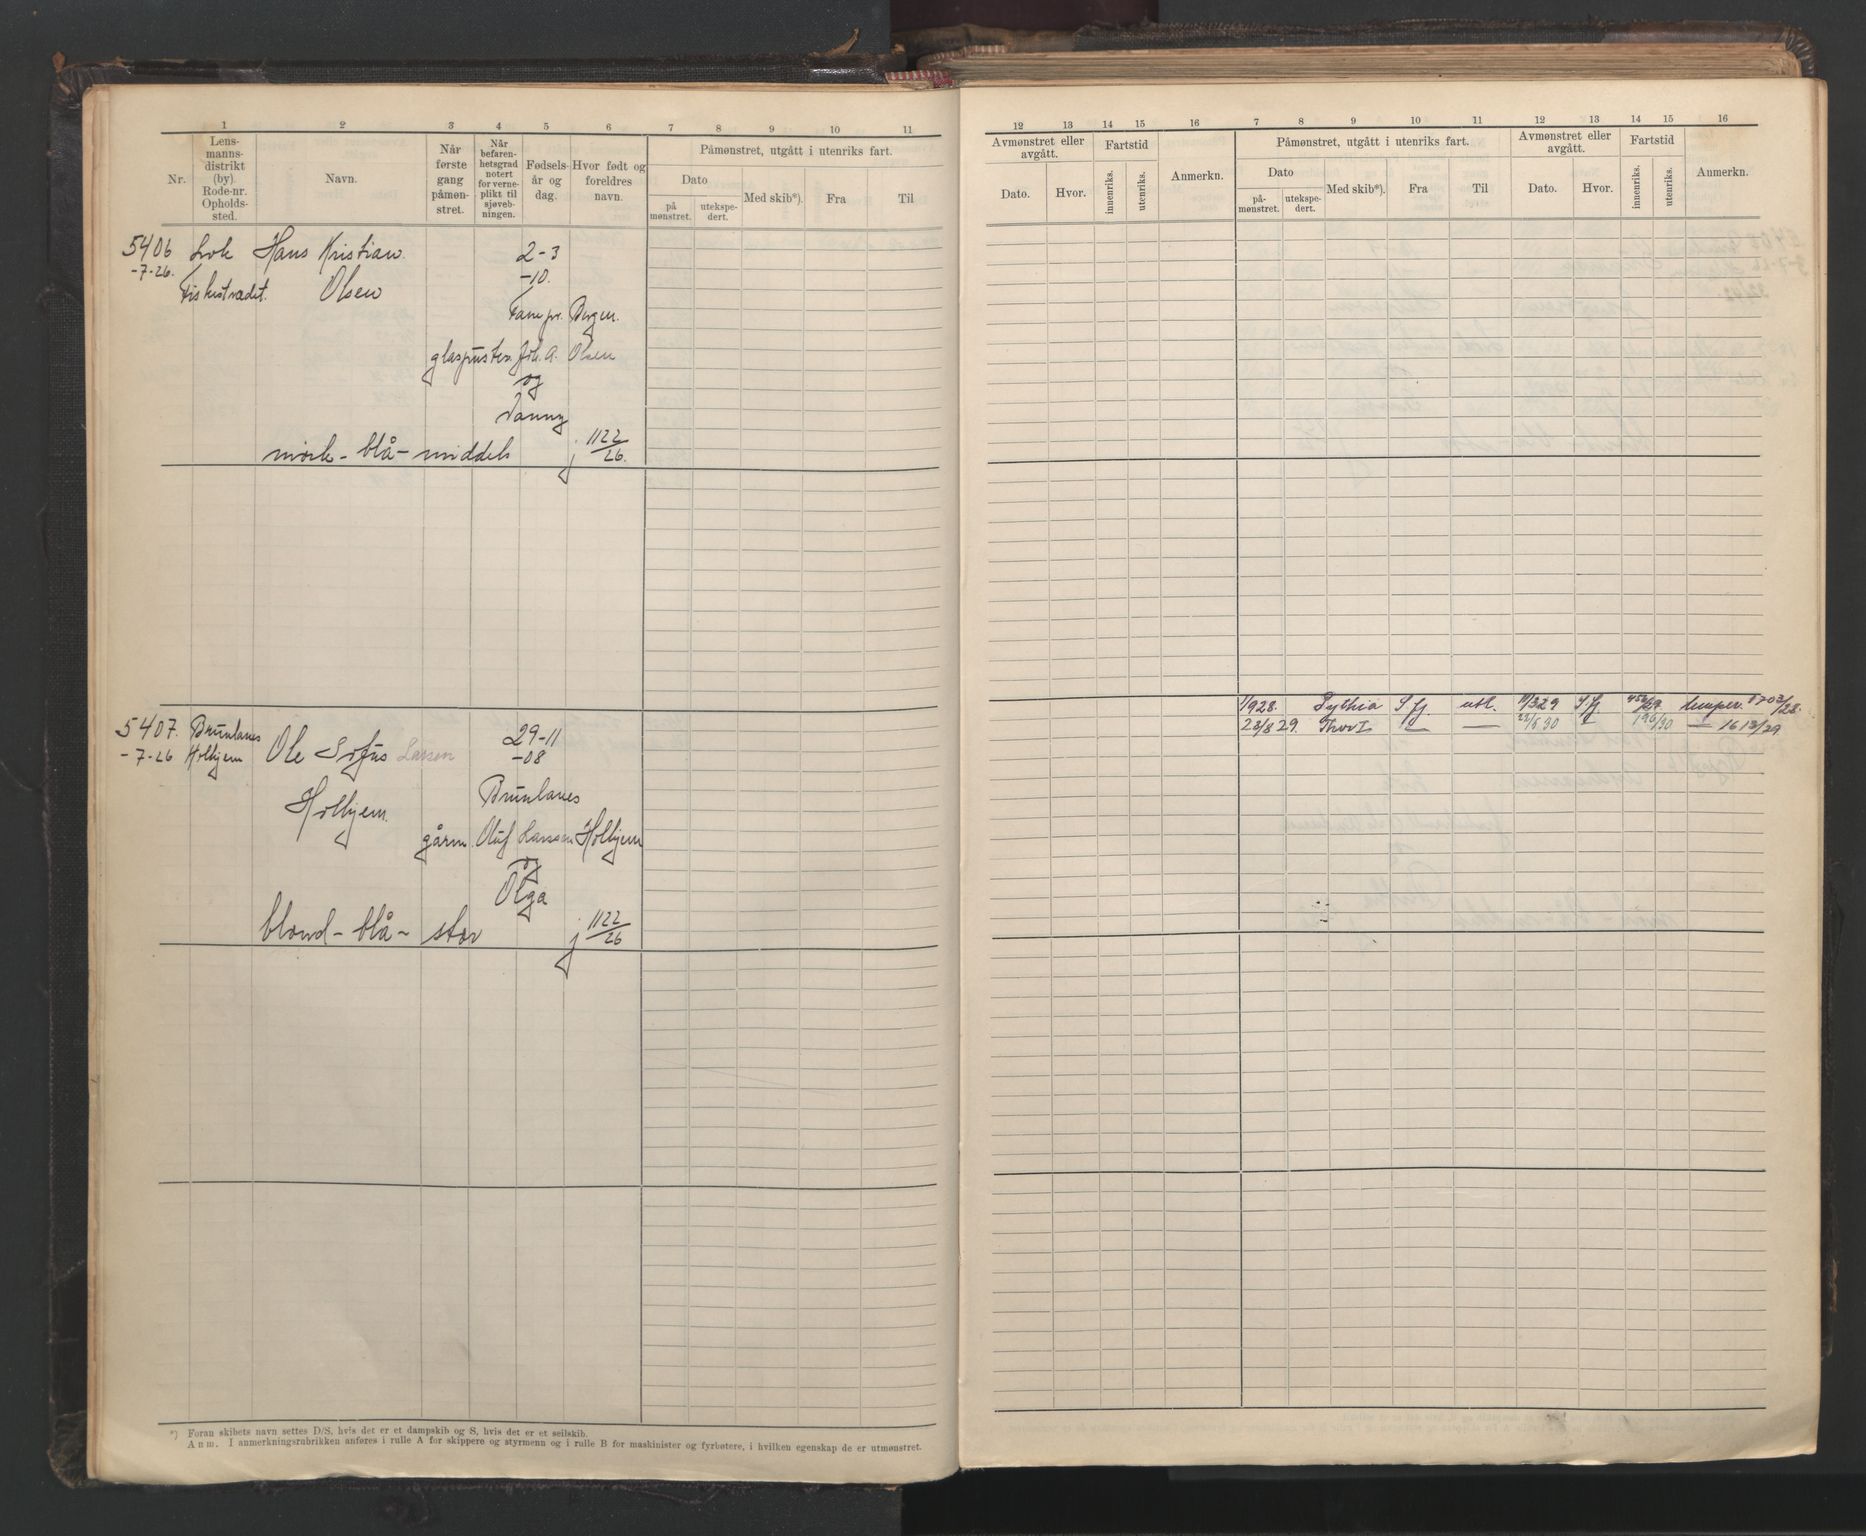 1 2 3 4 5 6 7 8 9 10 11
Nr.
Lens-
manns-
distrikt
(by).
Rode-nr.
Opholds-
sted.
Navn.
Når
første
gang
påmøn-
stret.
Når
befaren-
hetsgrad
notert
for verne-
plikt til
sjøveb-
ningen.
Fødsels-
år og
dag.
Hvor født og
foreldres
navn.
Påmønstret, utgått i utenriks fart.
Dato
på
mønstret.
utekspe-
dert.
Med skib*).
Fra
Til
5406
-7-26.
Hans Kristian
Olsen
2-3
-10.
Bergen.
Joh. A. Olsen
og
mørk - blå - middels j 1122/26.
5407.
-7-26
Brunlanes
Holhjem
Ole Sofus Larsen
Holhjem.
29-11
-08
Brunlanes
gårm. Oluf Larsen Holhjem
og
Olga
blond - blå - stor j 1122/26
*) Foran skibets navn settes D/S, hvis det er et dampskib og S, hvis det er et seilskib.
Anm. I anmerkningsrubrikken anføres i rulle A for skippere og styrmenn og i rulle B for maskinister og fyrbøtere, i hvilken egenskap de er utmønstret.
12 13 14 15 16 7 8 9 10 11 12 13 14 15 16
Avmønstret eller
avgått.
Dato.
Hvor.
Fartstid
innenriks.
utenriks.
Anmerkn.
Påmønstret, utgått i utenriks fart.
Dato
på-
mønstret.
utekspe-
dert.
Med skib*).
Fra
Til
Avmønstret eller
avgått.
Dato.
Hvor.
Fartstid
innenriks.
utenriks.
Anmerkn.
1/928. Pythia S.fj. utl. 11/329 S.fj. 1703/28.
23/8 29. Thor I — — 22/5 30 — 190/30 — 1613/29